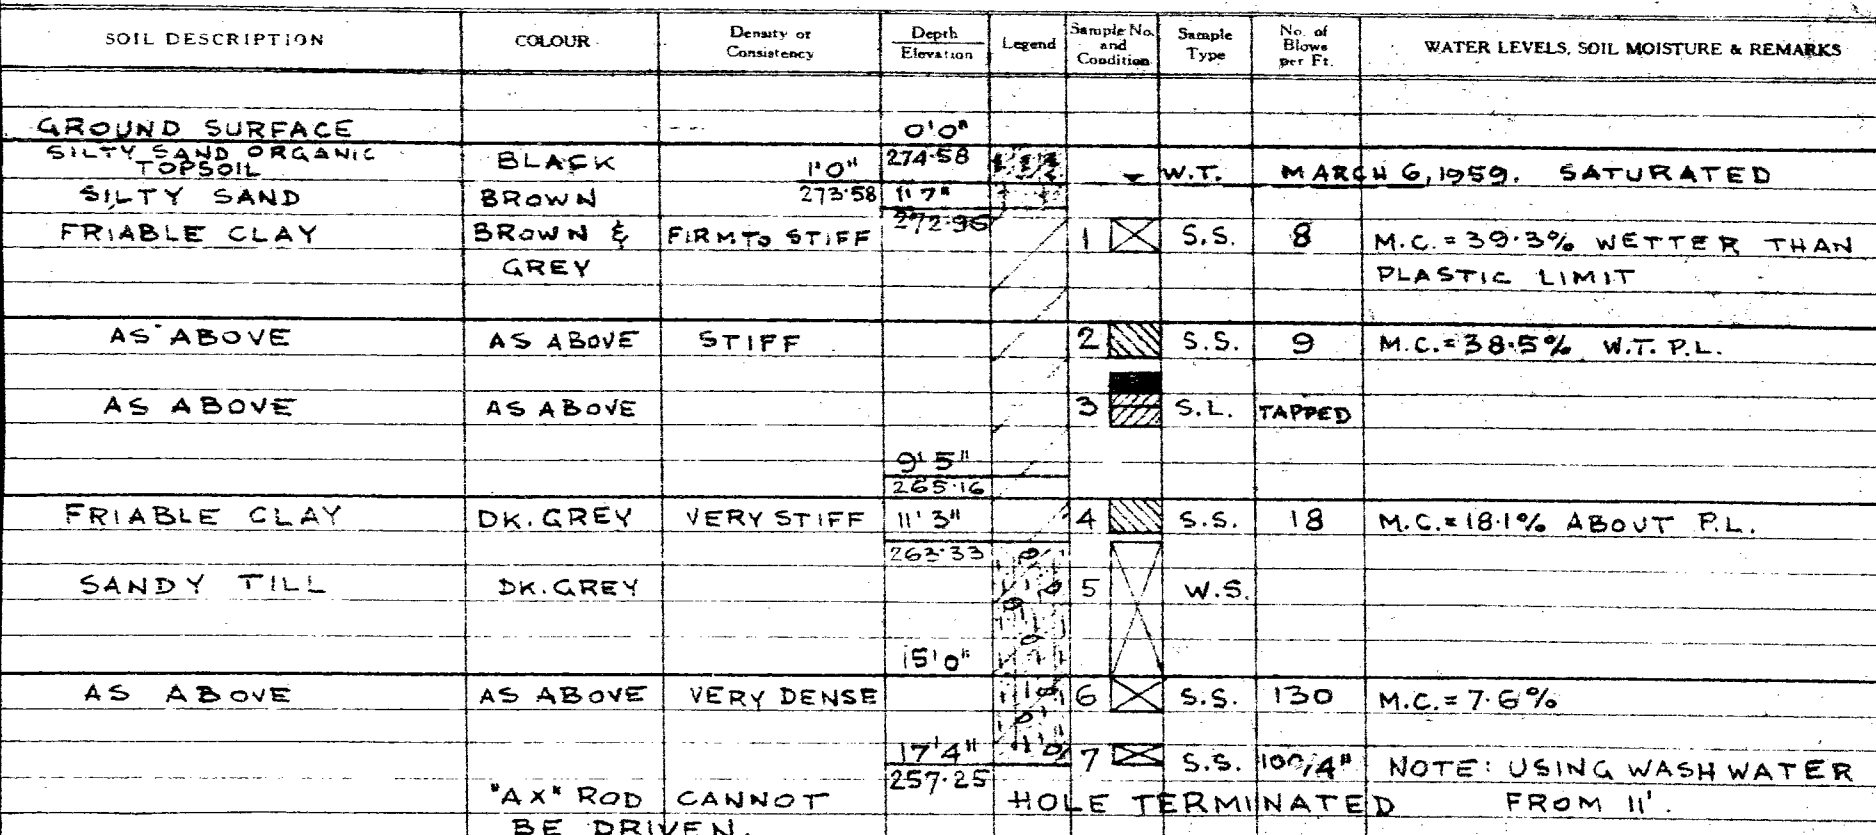 SOIL DESCRIPTION COLOUR Density or Consistency Depth Elevation Legend Sample No. and Condition Sample Type No. of Blows per Ft. WATER LEVELS, SOIL MOISTURE & REMARKS
GROUND SURFACE 0'0"
SILTY SAND ORGANIC TOPSOIL BLACK 1'0" 274.58 W.T. MARCH 6, 1959. SATURATED
SILTY SAND BROWN 273.58 1'7"
FRIABLE CLAY BROWN & FIRM TO STIFF 272.95 1 S.S. 8 M.C. = 39.3% WETTER THAN
GREY PLASTIC LIMIT
AS ABOVE AS ABOVE STIFF 2 S.S. 9 M.C. = 38.5% W.T. P.L.
AS ABOVE AS ABOVE 3 S.L. TAPPED
9'5"
265.16
FRIABLE CLAY DK. GREY VERY STIFF 11'3" 4 S.S. 18 M.C. = 18.1% ABOUT P.L.
263.33
SANDY TILL DK. GREY 5 W.S.
15'0"
AS ABOVE AS ABOVE VERY DENSE 6 S.S. 130 M.C. = 7.6%
17'4" 7 S.S. 100/4" NOTE: USING WASH WATER
257.25
"AX" ROD CANNOT HOLE TERMINATED FROM 11'.
BE DRIVEN.